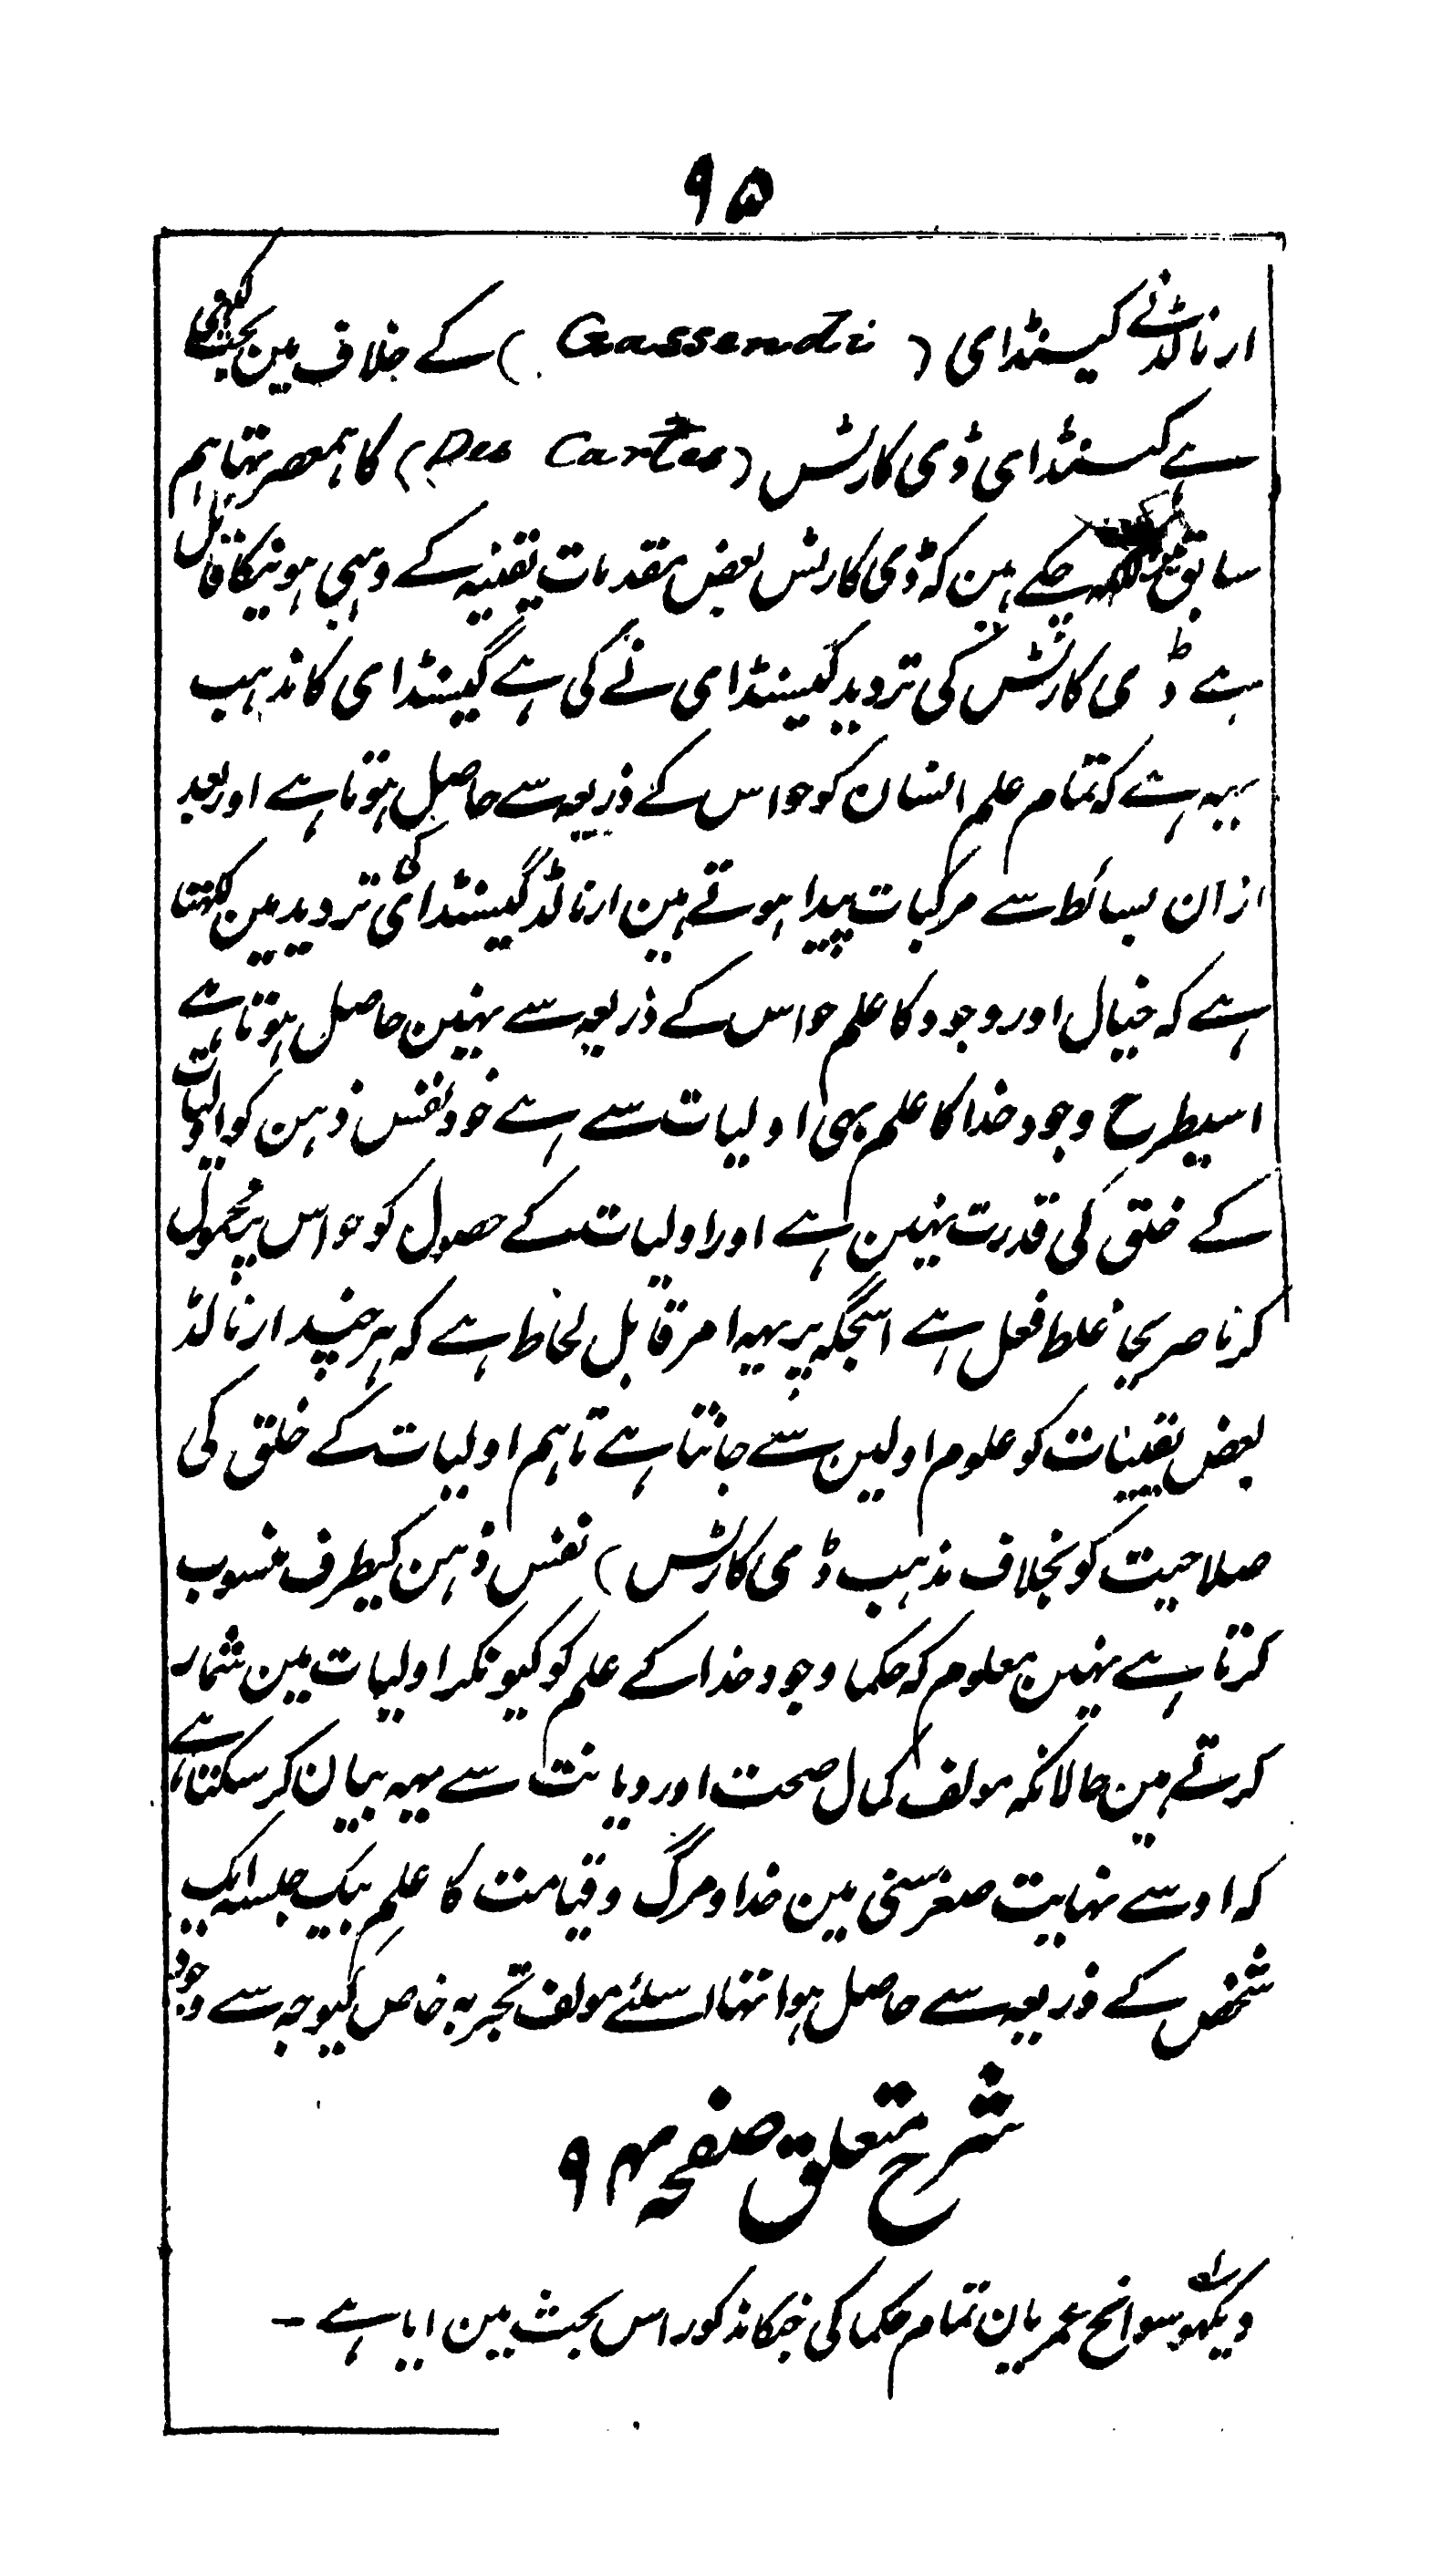 ۹۵
ارنالڈنے گیسنڈای (Gassendi) کے خلاف مین بحث لکھی
ہے گسنڈای ڈی کارٹس (Des Cartes) کا ہمعصر تہا ہم
سابق کہہ چکے ہین کہ ڈی کارٹس بعض مقدمات یقینیہ کے وہبی ہونیکا قائل
ہے ڈی کارٹس کی تردید گیسنڈای نے کی ہے گیسنڈای کا مذہب
یہہ ہے کہ تمام علم انسان کو حواس کے ذریعہ سے حاصل ہوتا ہے اور بعد
ازان بسائط سے مرکبات پیدا ہوتے ہین ارنالڈ گیسنڈای کی تردید مین لکھتا
ہے کہ خیال اور وجود کا علم حواس کے ذریعہ سے نہین حاصل ہوتا ہے
اسیطرح وجود خدا کا علم بھی اولیات سے ہے خود نفس ذہن کو اولیات
کے خلق کی قدرت نہین ہے اور اولیات کے حصول کو حواس پر محمول
کرنا صریحا غلط فعل ہے اسجگہ پر یہہ امر قابل لحاظ ہے کہ ہر چند ارنالڈ
بعض یقینیات کو علوم اولین سے جانتا ہے تاہم اولیات کے خلق کی
صلاحیت کو بخلاف مذہب ڈی کارٹس) نفس ذہن کیطرف منسوب
کرتا ہے نہین معلوم کہ حکما وجود خدا کے علم کو کیونکر اولیات مین شمار
کرتے ہین حالانکہ مولف کمال صحت اور دیانت سے یہہ بیان کر سکتا ہے
کہ اوسے نہایت صغر سنی مین خدا و مرگ و قیامت کا علم بیک جلسہ ایک
شخص کے ذریعہ سے حاصل ہوا تہا اسلئے مولف تجربہ خاص کیوجہ سے وجود
شرح متعلق صفحہ ۹۴
دیکھو سوانح عمریان تمام حکما کی جنکا مذکور اس بحث مین ایا ہے ۔